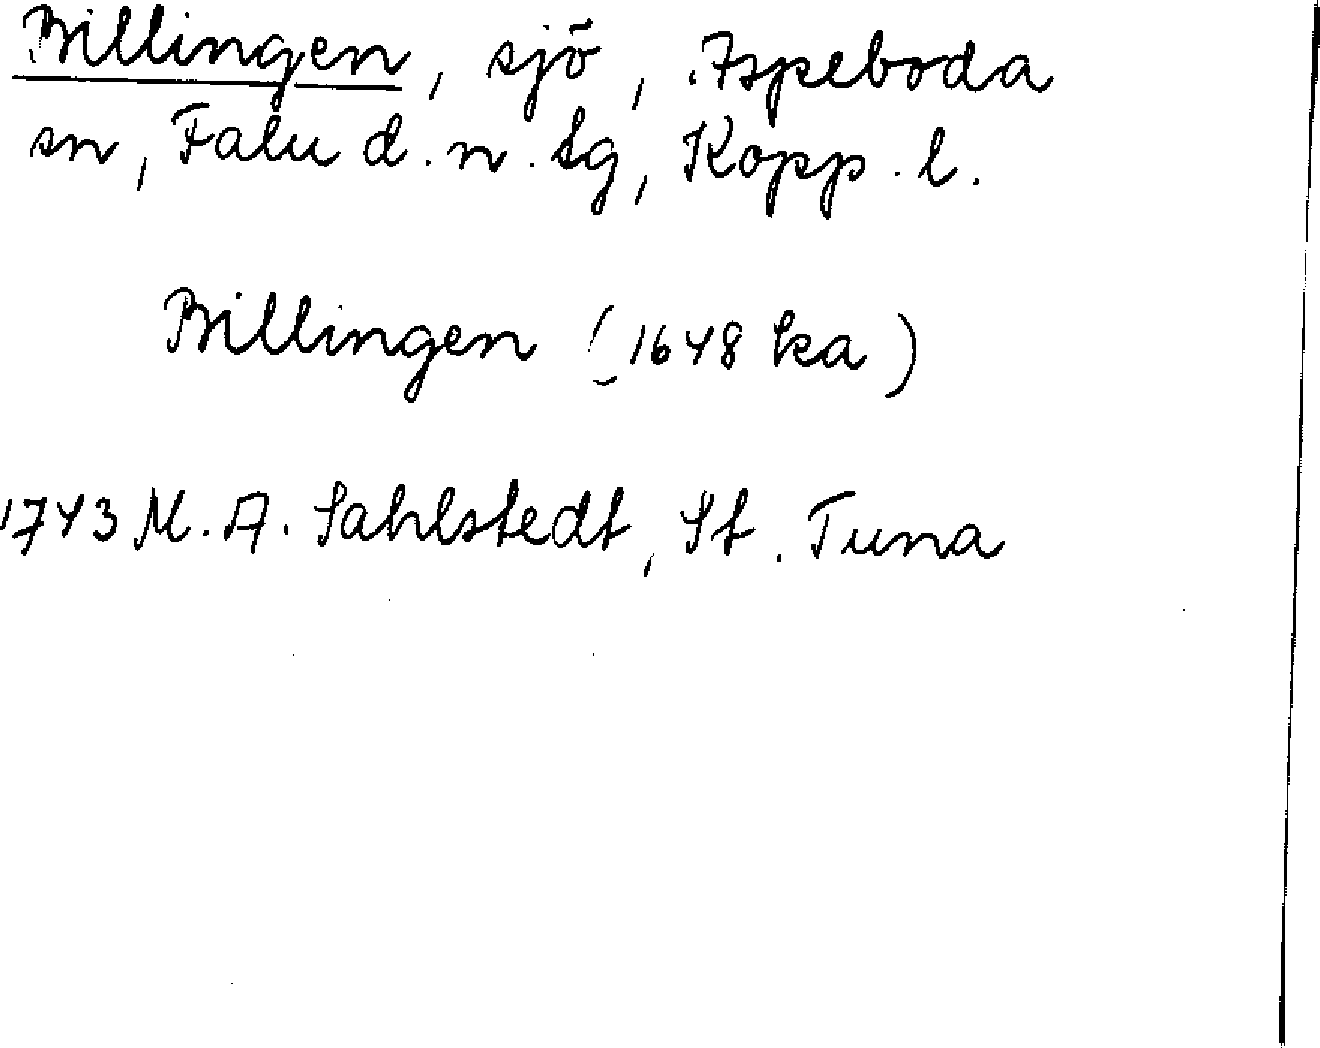 Billingen, sjö, Aspeboda
sn, Falu d.n. tg, Kopp. l.
Billingen (1648 ka)
1743 M. A. Sahlstedt, St. Tuna